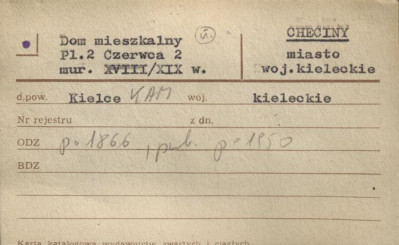 Dom mieszkalny
Pl.2 Czerwca 2
mur. XVIII/XIX w.
CHĘCINY
miasto
woj.kieleckie
d.pow. Kielce KAM woj. kieleckie
Nr rejestru z dn.
ODZ p. 1866, p. 1950
BDZ
Karta katalogowa wydawnictw zwartych i ciągłych